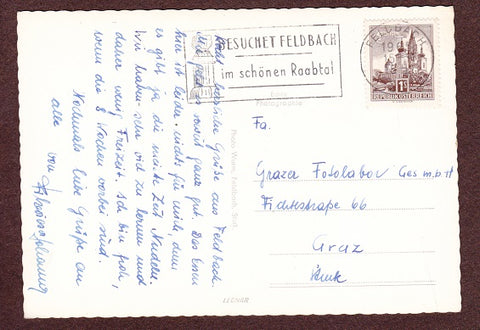 BESUCHET FELDBACH
im schönen Raabtal
FELDBACH
REPUBLIK ÖSTERREICH
Echte
Photographie
Photo Wurm, Feldbach, Stmk.
LEDNAR
Fa.
Grazer Fotolabor Ges m.b.H
Fichtestraße 66
Graz
Stmk
herzliche Grüße aus Feldbach
ganz gut. Das Essen
hier ist leider nichts für mich, denn
es gibt ja die meiste Zeit Nudeln
Wir haben sehr viel zu lernen und
daher wenig Freizeit. Ich bin froh,
wenn die 8 Wochen vorbei sind.
Nochmals liebe Grüße an
alle von